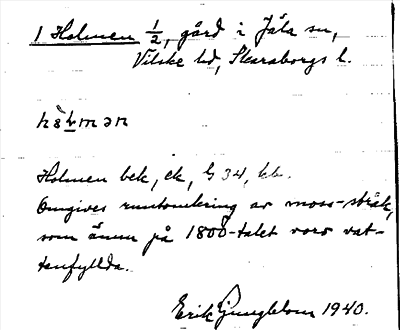 1 Holmen 1/2, gård i Jäla sn,
Vilske hd, Skaraborgs l.
Holmen bek, ek, G 34, kb.
Omgives runtomkring av moss-stråk,
som ännu på 1800-talet voro vat-
tenfyllda.
Erik Ljungblom 1940.